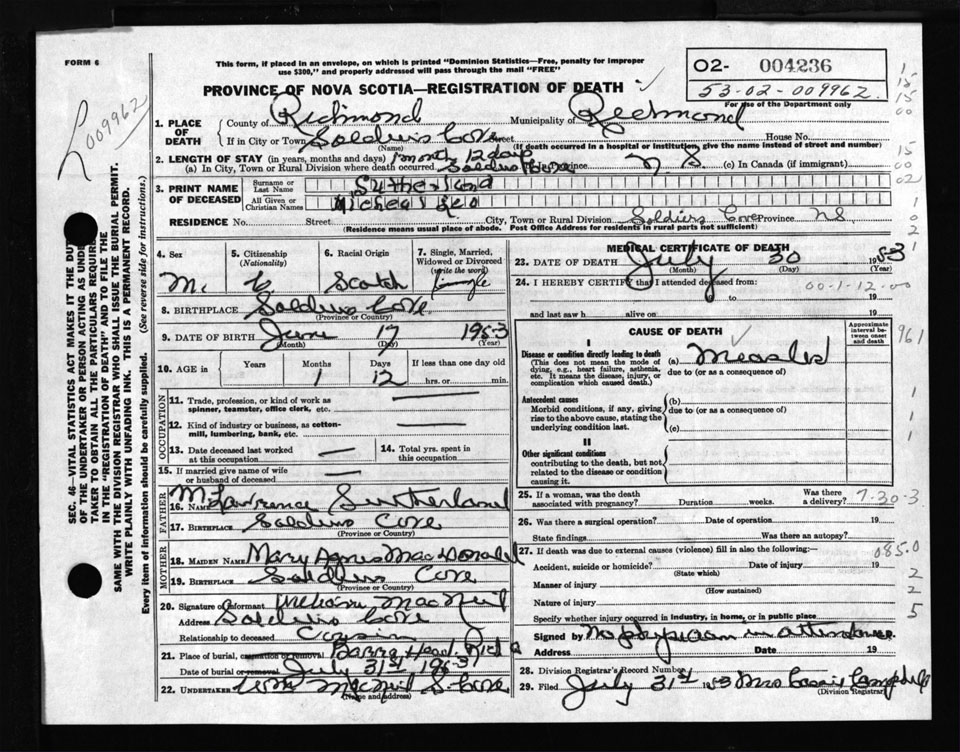 FORM 6
This form, if placed in an envelope, on which is printed "Dominion Statistics—Free, penalty for improper
use $300," and properly addressed will pass through the mail "FREE"
02- 004236
53-02-009962
For use of the Department only
009962
PROVINCE OF NOVA SCOTIA—REGISTRATION OF DEATH
1. PLACE OF DEATH
County of Richmond Municipality of Richmond
If in City or Town Soldiers Cove Street House No.
(Name) (If death occurred in a hospital or institution give the name instead of street and number)
2. LENGTH OF STAY (in years, months and days) 1 month 12 days
(a) In City, Town or Rural Division where death occurred Soldiers Cove In Province N S. (c) In Canada (if immigrant)
3. PRINT NAME OF DECEASED
Surname or Last Name Sutherland
All Given or Christian Names Micheal Leo
RESIDENCE No. Street City, Town or Rural Division Soldiers Cove Province NS
(Residence means usual place of abode. Post Office Address for residents in rural parts not sufficient)
4. Sex M.
5. Citizenship (Nationality) C
6. Racial Origin Scotch
7. Single, Married, Widowed or Divorced (write the word) Single
8. BIRTHPLACE Soldiers Cove.
(Province or Country)
9. DATE OF BIRTH June 17 1953
(Month) (Day) (Year)
10. AGE in Years Months Days If less than one day old
1 12 hrs. or min.
OCCUPATION
11. Trade, profession, or kind of work as
spinner, teamster, office clerk, etc.
12. Kind of industry or business, as cotton-
mill, lumbering, bank, etc.
13. Date deceased last worked
at this occupation
14. Total yrs. spent in
this occupation
15. If married give name of wife
or husband of deceased
FATHER
16. NAME Lawrence Sutherland
17. BIRTHPLACE Soldiers Cove
(Province or Country)
MOTHER
18. MAIDEN NAME Mary Agnes MacDonald
19. BIRTHPLACE Soldiers Cove
(Province or Country)
20. Signature of informant William MacNeil
Address Soldiers Cove
Relationship to deceased Cousin
21. Place of burial, cremation or removal Barra Head. Rich Co
Date of burial or removal July 31st 1953
22. UNDERTAKER Wm MacNeil S. Cove
(Name and address)
MEDICAL CERTIFICATE OF DEATH
23. DATE OF DEATH July 30 1953
(Month) (Day) (Year)
24. I HEREBY CERTIFY that I attended deceased from:
00-1-12-00
to 19
and last saw h alive on 19
CAUSE OF DEATH
Approximate interval between onset and death
961
I
Disease or condition directly leading to death
(This does not mean the mode of
dying, e.g., heart failure, asthenia,
etc. It means the disease, injury, or
complication which caused death.)
(a) Measles
due to (or as a consequence of)
Antecedent causes
Morbid conditions, if any, giving
rise to the above cause, stating the
underlying condition last.
(b)
due to (or as a consequence of)
(c)
II
Other significant conditions
contributing to the death, but not
related to the disease or condition
causing it.
25. If a woman, was the death
associated with pregnancy? Duration weeks. Was there a delivery?
7-30-3
26. Was there a surgical operation? Date of operation 19
State findings Was there an autopsy?
27. If death was due to external causes (violence) fill in also the following:—
085.0
Accident, suicide or homicide? Date of injury 19
(State which)
Manner of injury
(How sustained)
Nature of injury
Specify whether injury occurred in industry, in home, or in public place
Signed by No physician in attendance
Address Date 19
28. Division Registrar's Record Number
29. Filed July 31st 1953 Mrs Cassie Campbell
(Division Registrar)
SEC. 46—VITAL STATISTICS ACT MAKES IT THE DUTY
OF THE UNDERTAKER OR PERSON ACTING AS UNDER-
TAKER TO OBTAIN ALL THE PARTICULARS REQUIRED
IN THE "REGISTRATION OF DEATH" AND TO FILE THE
SAME WITH THE DIVISION REGISTRAR WHO SHALL ISSUE THE BURIAL PERMIT.
WRITE PLAINLY WITH UNFADING INK. THIS IS A PERMANENT RECORD.
Every item of information should be carefully supplied. (See reverse side for instructions.)
1
15
15
00
15
00
02
1
0
2
1
1
1
1
2
2
5